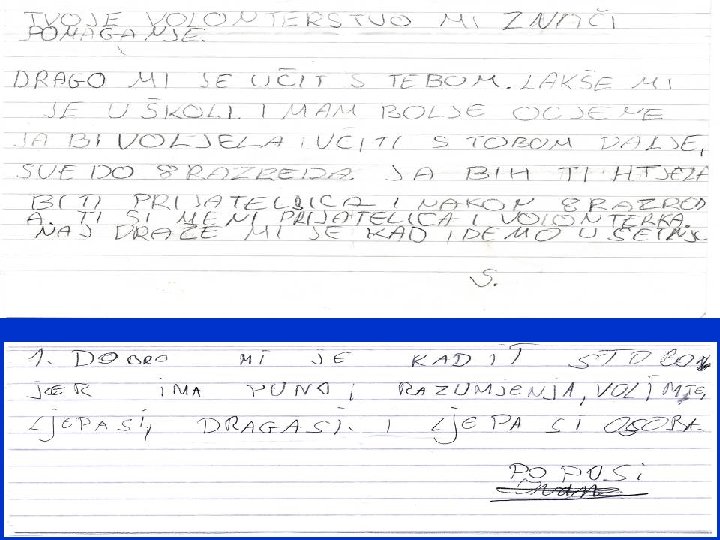 TVOJE VOLONTERSTVO MI ZNAČI
POMAGANJE.
DRAGO MI JE UČIT S TEBOM. LAKŠE MI
JE U ŠKOLI. IMAM BOLJE OCJENE
JA BI VOLJELA I UČITI S TOBOM DALJE,
SVE DO 8 RAZREDA. JA BIH TI HTJELA
BITI PRIJATELJICA I NAKON 8 RAZRED
A. TI SI MENI PRIJATELICA I VOLONTERKA.
NAJ DRAŽE MI JE KAD IDEMO U ŠETNJ
S.
1. DOBRO MI JE KAD IT S TOBOM
JER IMA PUNO I RAZUMJENJA, VOLIMTE,
LJEPA SI, DRAGA SI. I LJEPA SI OSOBA